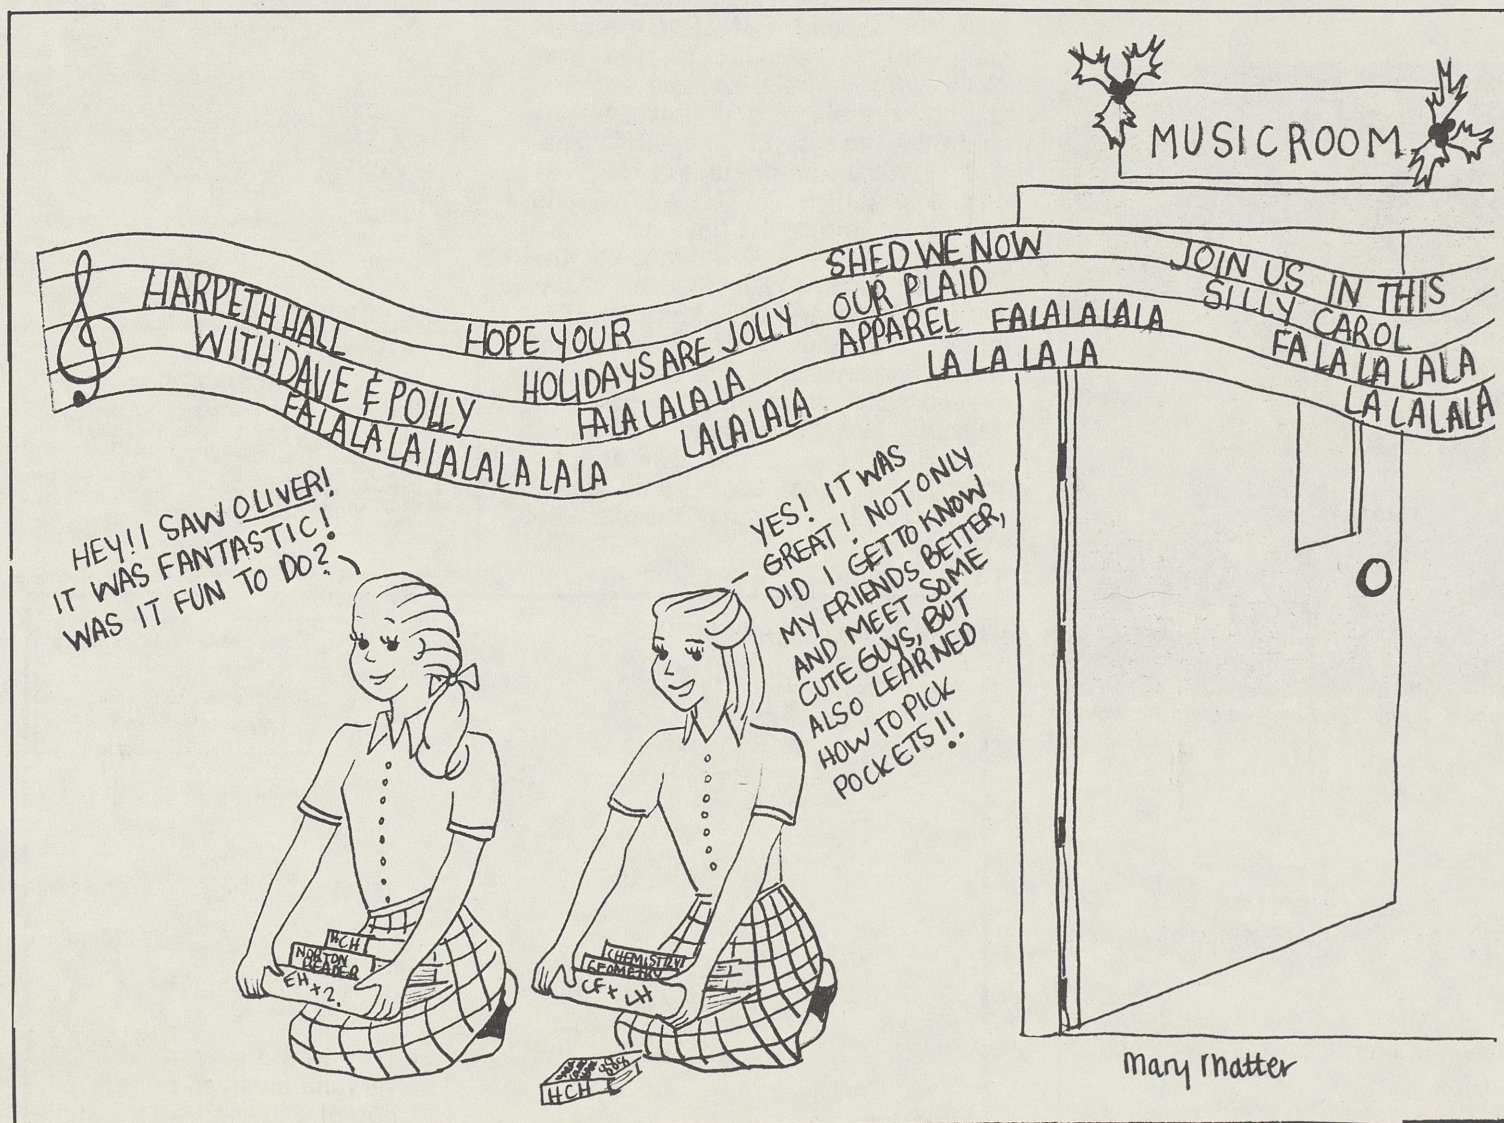 MUSIC ROOM
HARPETH HALL
WITH DAVE & POLLY
FALALALALALALALALA
HOPE YOUR
HOLIDAYS ARE JOLLY
FALALALALA
LALALALA
SHED WE NOW
OUR PLAID
APPAREL FALALALALA
LA LA LA LA
JOIN US IN THIS
SILLY CAROL
FA LA LA LA LA
LA LA LA LA
HEY!! I SAW OLIVER!
IT WAS FANTASTIC!
WAS IT FUN TO DO?
YES! IT WAS
GREAT! NOT ONLY
DID I GET TO KNOW
MY FRIENDS BETTER,
AND MEET SOME
CUTE GUYS, BUT
ALSO LEARNED
HOW TO PICK
POCKETS!!
HCH
NORTON
READER
EH x 2.
CHEMISTRY
GEOMETRY
CF x LH
HCH
Mary Matter